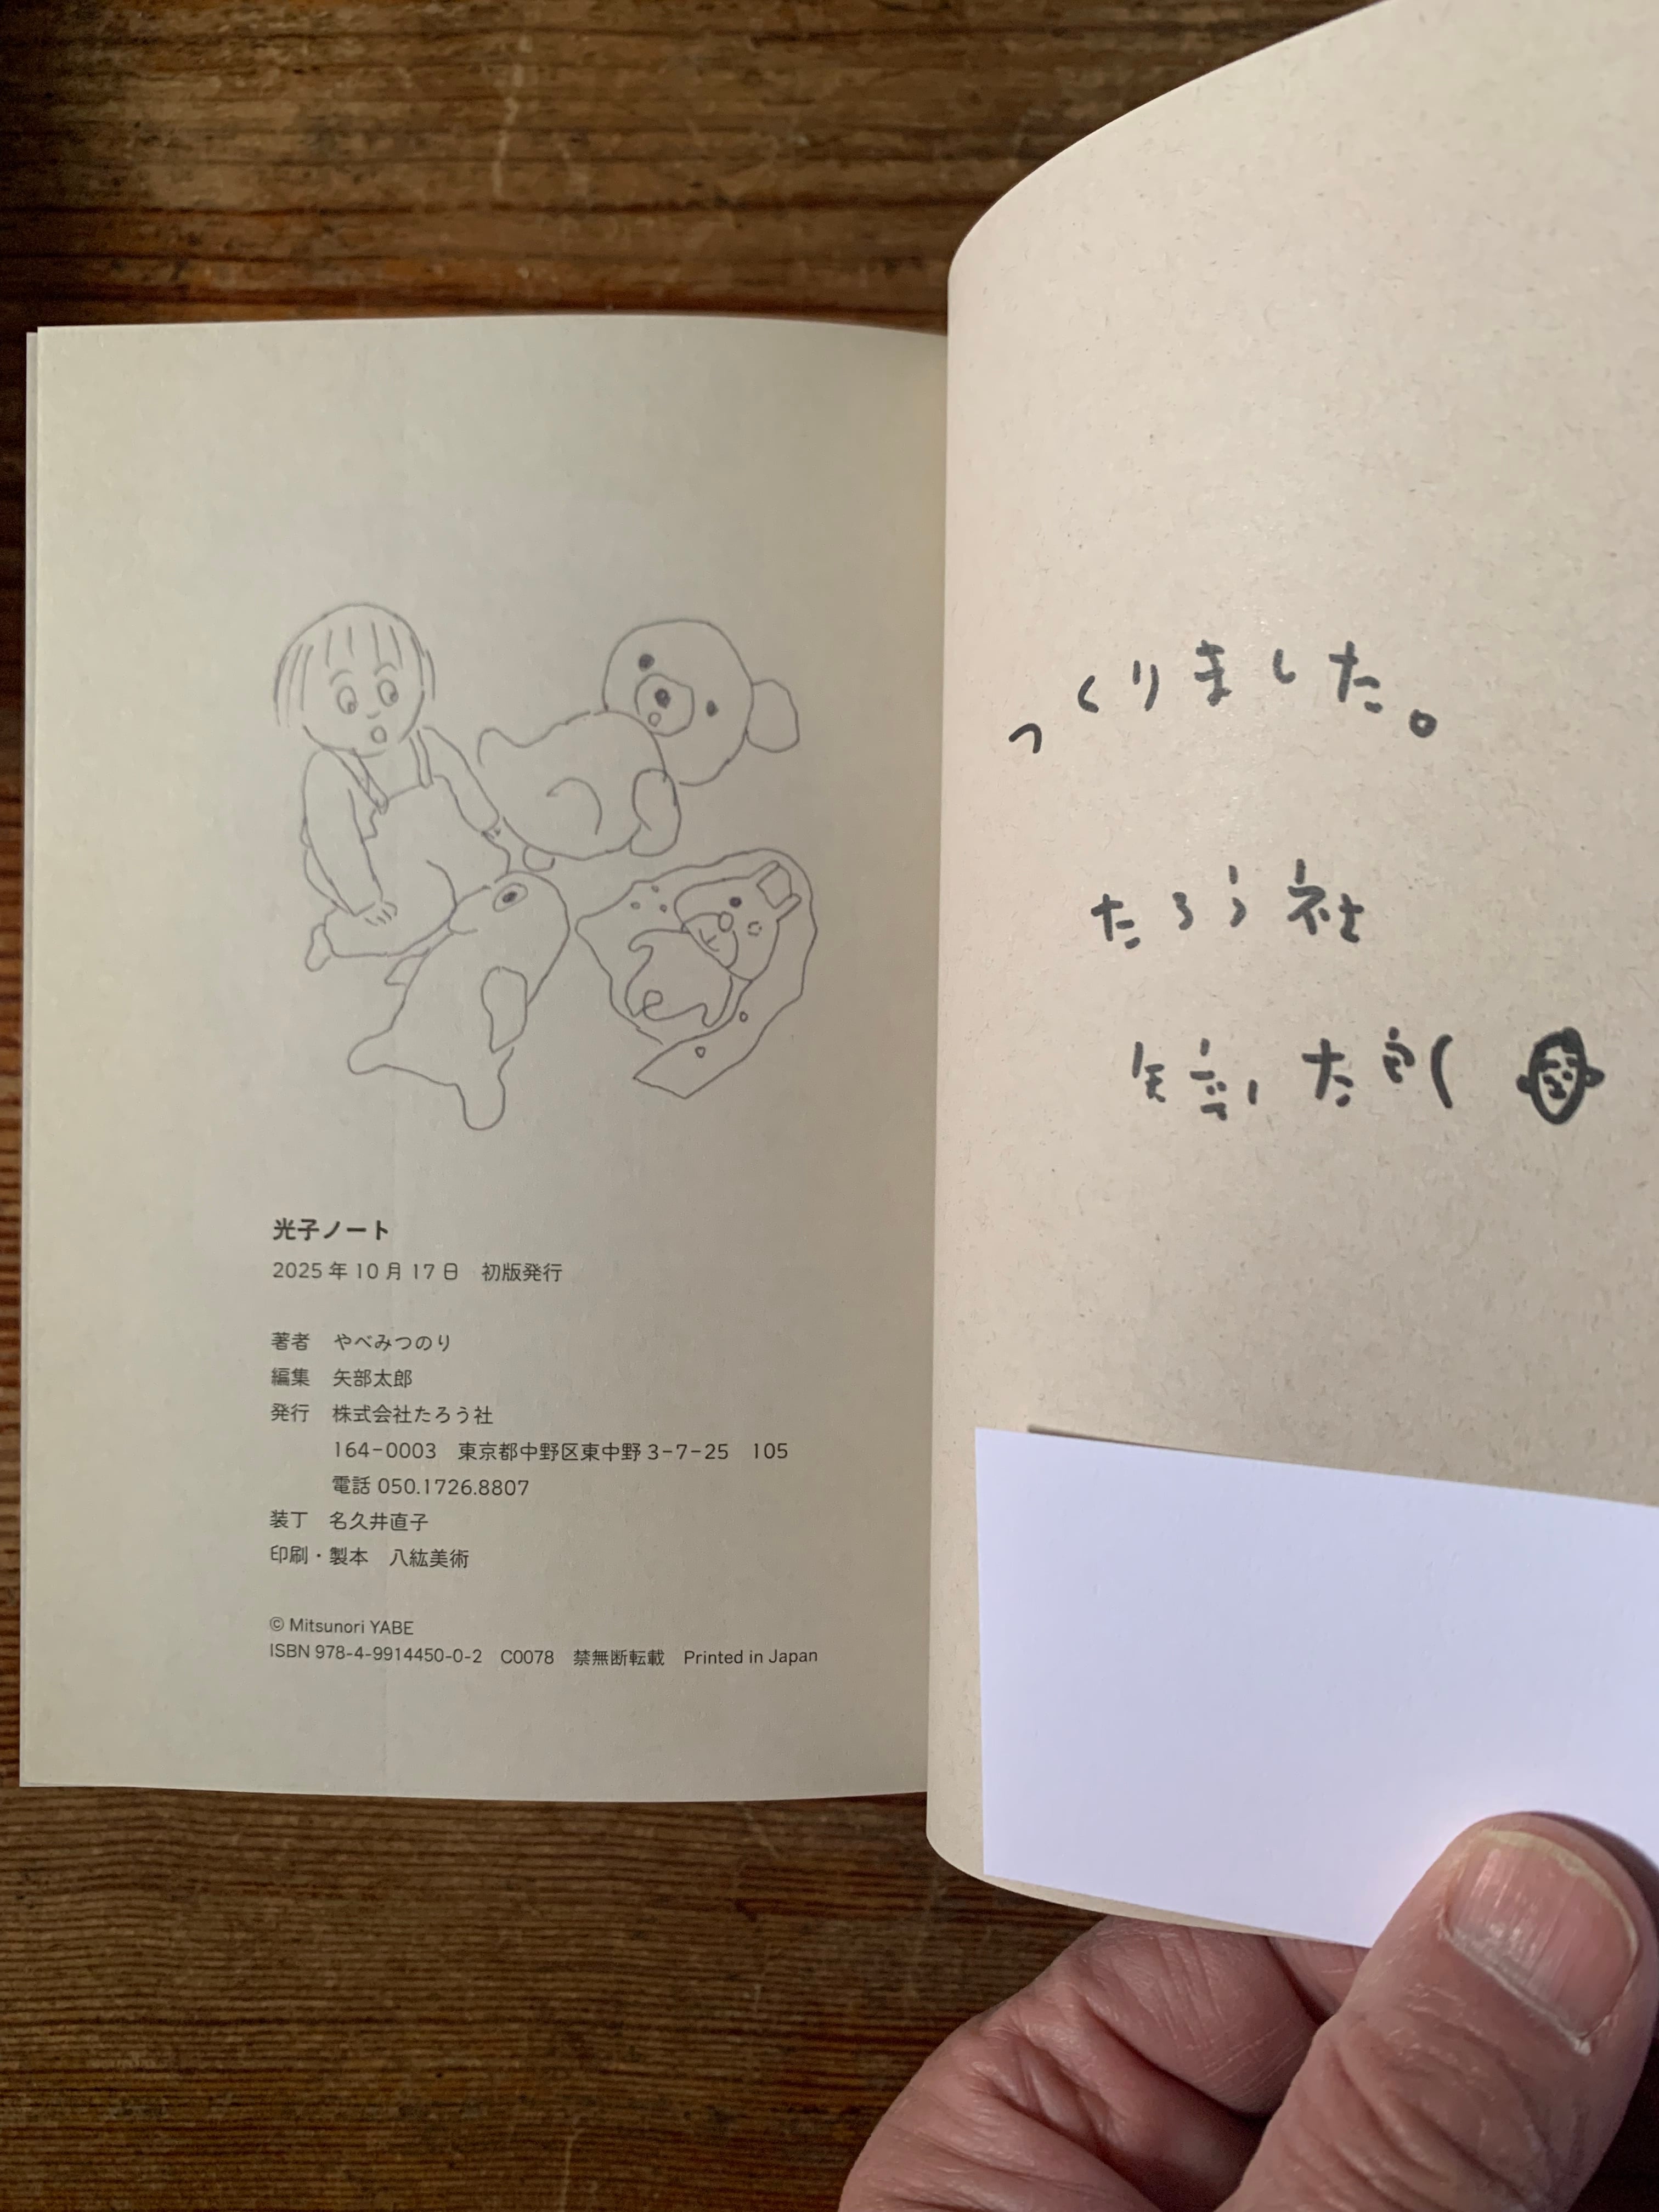 光子ノート
2025年10月17日　初版発行
著者　やべみつのり
編集　矢部太郎
発行　株式会社たろう社
164-0003　東京都中野区東中野3-7-25　105
電話 050.1726.8807
装丁　名久井直子
印刷・製本　八紘美術
© Mitsunori YABE
ISBN 978-4-9914450-0-2　C0078　禁無断転載　Printed in Japan
つくりました。
たろう社
矢部太郎